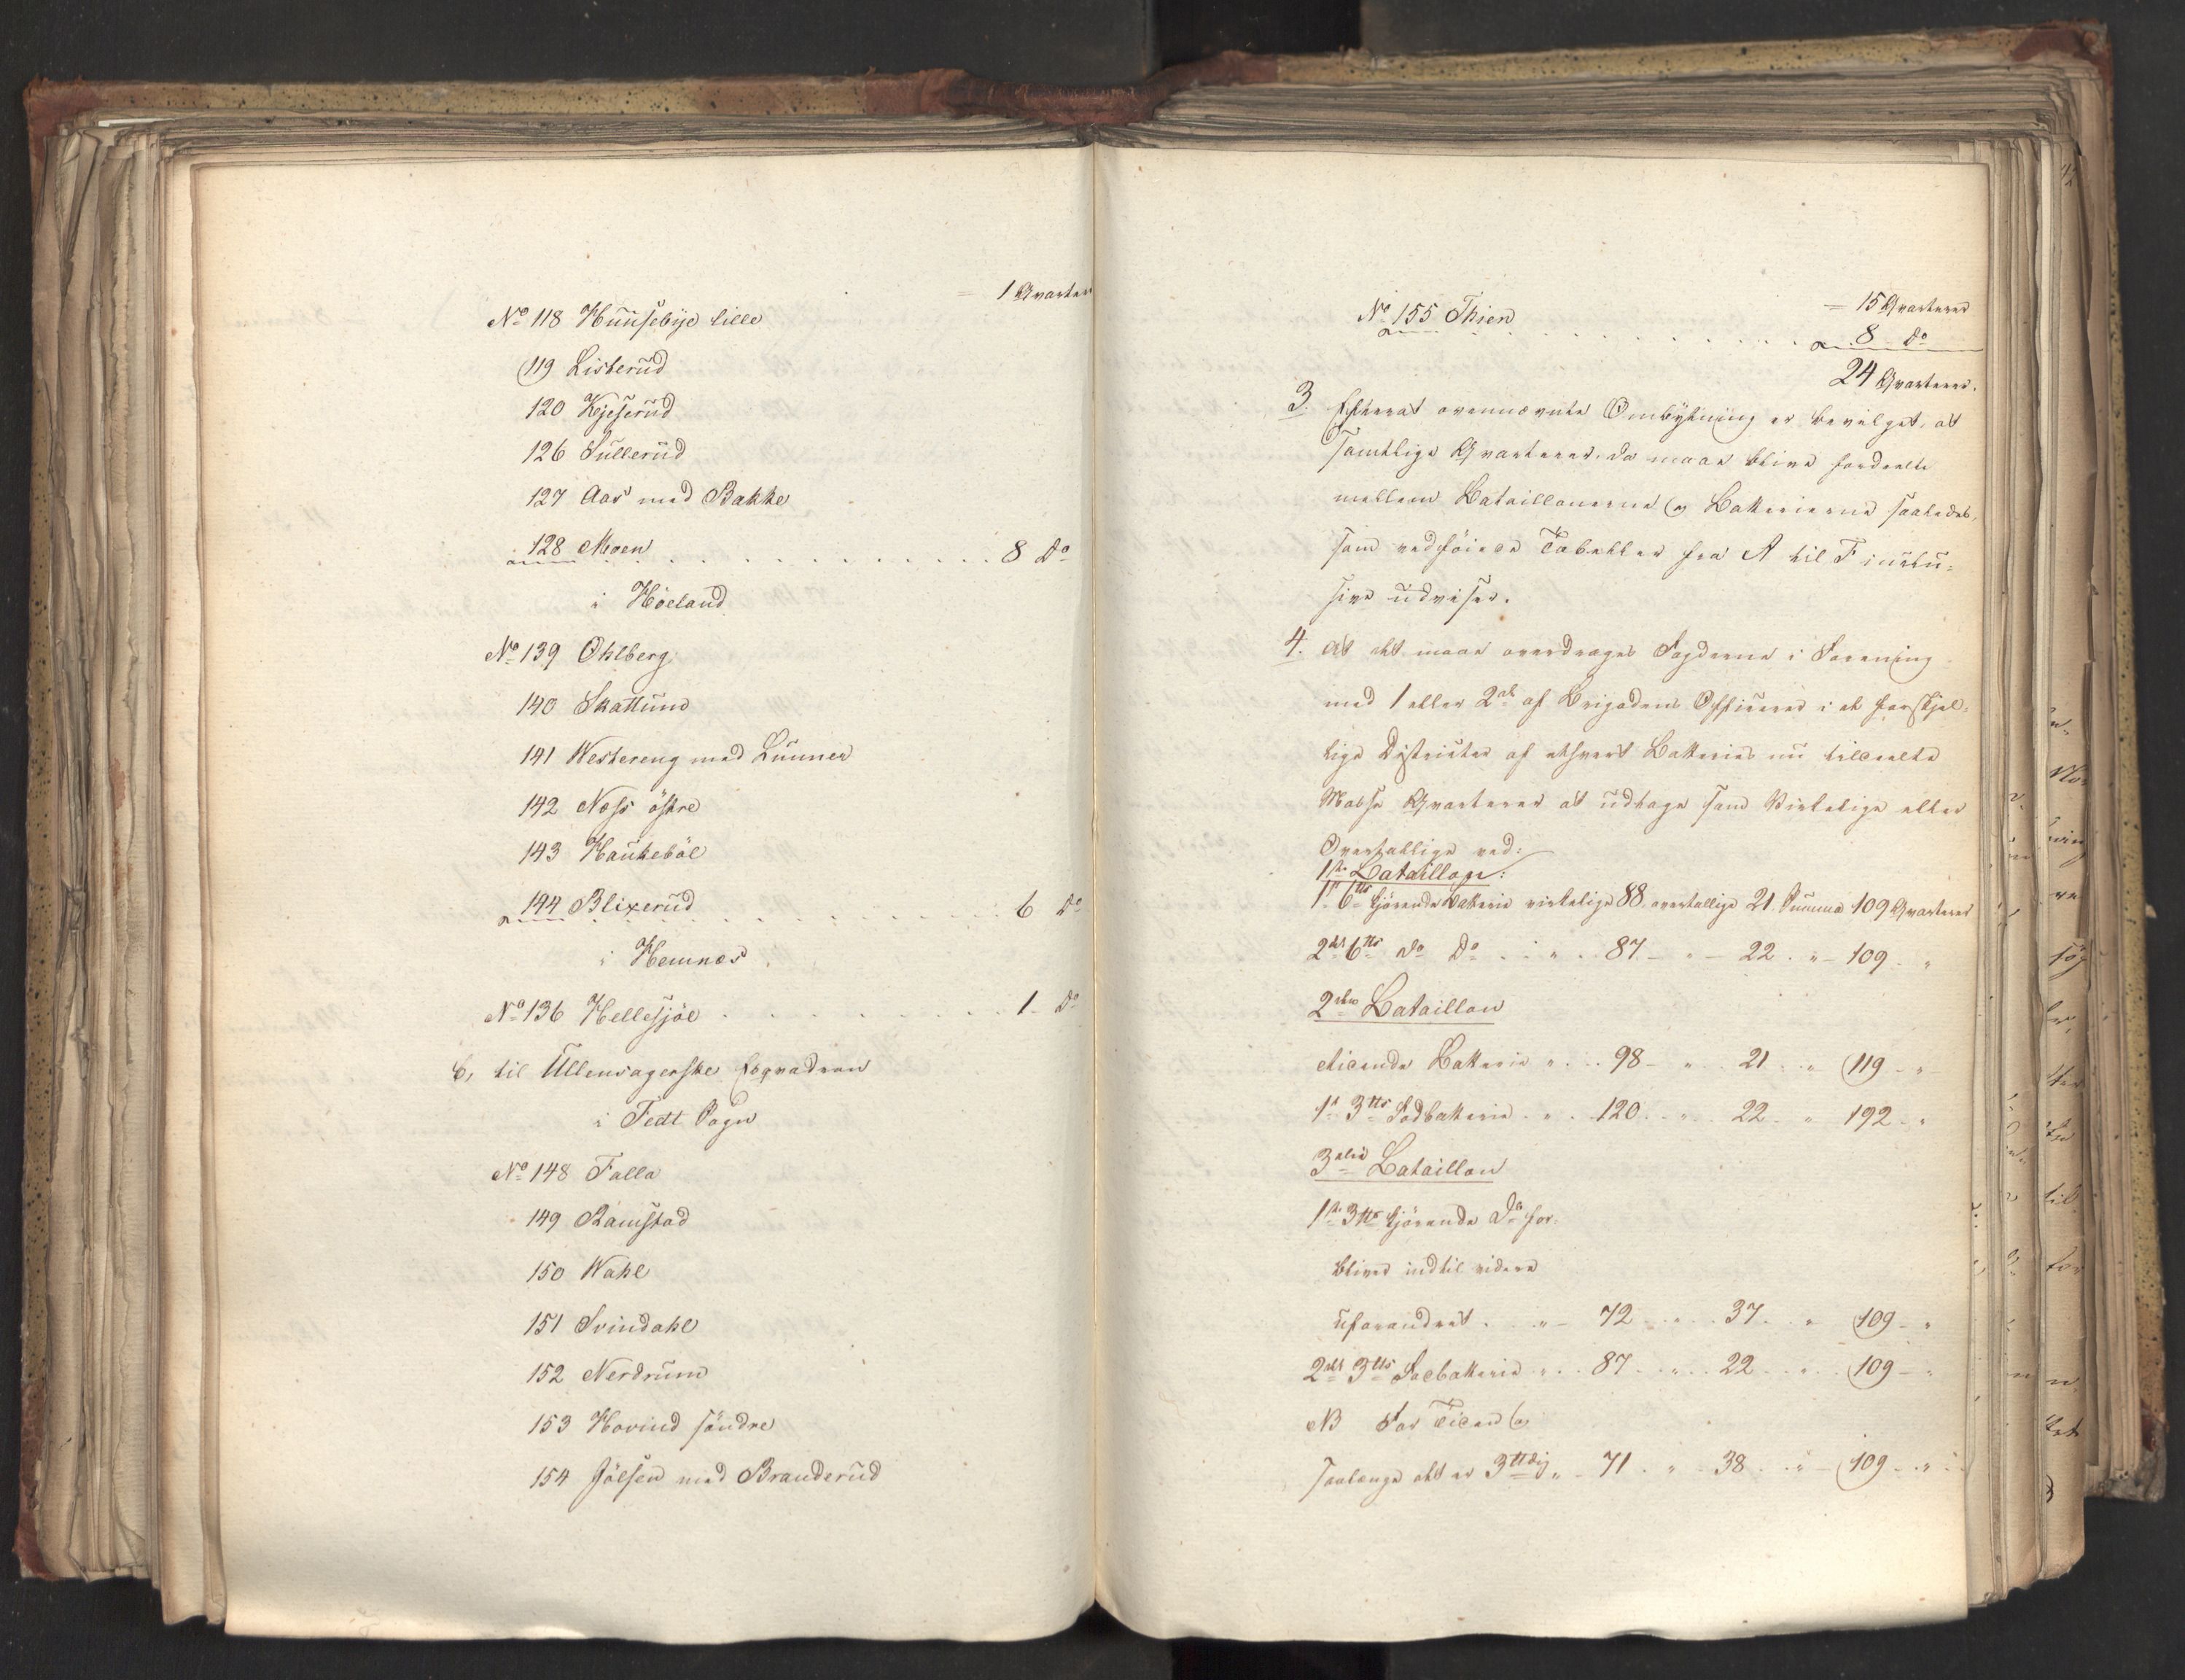 = 1 Qvarteer
No 118 Huusebye lille
119 Listerud
120 Kjeserud
126 Sullerud
127 Aas med Bakke
128 Moen . . . . . . . . . . . . 8 Do
i Höeland
No 139 Ohlberg
140 Skattum
141 Westereng med Lunner
142 Næss östre
143 Haukeböl
144 Blixerud . . . . . . . . . . 6 Do
i Hemnæs
No 136 Hellesjöe . . . . . . . . . . 1 Do
b, til Ullensagerske Esqvadron
i Fedt Sogn
No 148 Falla
149 Ramstad
150 Wahl
151 Svindahl
152 Nerdrum
153 Hovind söndre
154 Jölsen med Branderud
= 15 Qvarterer
No 155 Thien . . . . . . . . . . 8 Do
24 Qvarterer.
3. Efterat ovennævnte Ombytning er bevilget, at
samtlige Qvarterer da maae blive fordeelte
mellem Bataillonerne og Batterierne saaledes,
som vedföiede Tabeller fra A til F inclu=
sive udviser.
4. At det maae overdrages Fogderne i Forening
med 1 eller 2de af Brigadens Officerer i de forskjel=
lige Districter af ethvert Batteries nu tildeelte
Masse Qvarterer at udtage som Virkelige eller
Overtallige ved:
1ste Bataillon:
1ste 6tts kjörende Batterie virkelige 88. overtallige 21. Summa 109 Qvarterer
2det 6tts do Do . . " . 87 - " - 22 . " - 109 . "
2den Bataillon
ridende Batterie " . . 98 - " . . 21 . . " 119 - "
1ste 3tts Fodbatterie . " . 120 . . " . . 22 . " 192 - "
3die Bataillon
1ste 3tts kjörende Do for=
bliver indtil videre
uforandret . . " - 72 . . " . . 37 . . " 109 - "
2det 3tts Fodbatterie " . . 87 . . " . . 22 . . " . 109 - "
NB For Tiden og
saalænge det er 3ttdig " - 71 . " . 38 . . " - 109 - "